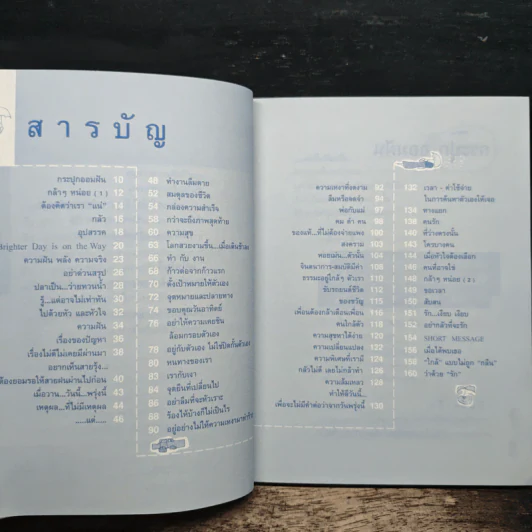 สารบัญ
กระปุกออมฝัน 10
กล้าๆ หน่อย (1) 12
ต้องคิดว่าเรา "แน่" 14
กลัว 16
อุปสรรค 18
Brighter Day is on the Way 20
ความฝัน พลัง ความจริง 23
อย่าด่วนสรุป 26
ปลาเป็น...ว่ายทวนน้ำ 28
รู้...แต่อาจไม่เท่าทัน 30
ไปด้วยหัว และหัวใจ 32
ความฝัน 34
เรื่องของปัญหา 36
เรื่องไม่ดีไม่เคยมีผ่านมา 38
อยากเห็นสายรุ้ง...
ต้องยอมรอให้สายฝนผ่านไปก่อน 40
เมื่อวาน...วันนี้...พรุ่งนี้ 43
เหตุผล...ที่ไม่มีเหตุผล 44
.....แต่..... 46
48 ทำงานลืมตาย
52 สมดุลของชีวิต
54 กล่องความสำเร็จ
58 กว่าจะถึงภาพสุดท้าย
60 ความสุข
63 โลกสวยงามขึ้น...เมื่อเดินช้าลง
66 ทำ กับ งาน
68 ก้าวต่อจากก้าวแรก
70 ตั้งเป้าหมายให้ตัวเอง
72 จุดหมายและปลายทาง
74 ขอบคุณวันอาทิตย์
76 อย่าให้ความเคยชิน
ล้อมกรอบตัวเอง
78 อยู่กับตัวเอง ไม่ใช่ปิดกั้นตัวเอง
80 หนทางของเรา
81 เรากับเงา
84 จุดยืนที่เปลี่ยนไป
86 อย่าลืมที่จะหัวเราะ
88 ร้องไห้บ้างก็ไม่เป็นไร
90 อยู่อย่างไม่ให้ความเหงามาทำร้าย
ความเหงาที่งดงาม 92
ลืมหรือจดจำ 94
พ่อกับแม่ 96
คน คำ คน 98
ของแท้...ที่ไม่ต้องจ่ายแพง
สงคราม 103
หอยแม่น...ตัวนั้น
จินตนาการ-สมบัติมีค่า
ธรรมะอยู่ใกล้ๆ ตัวเรา 110
ขับรถยนต์ชีวิต 112
ของขวัญ 115
เพื่อนต้องกล้าเตือนเพื่อน 116
คนใกล้ตัว 118
ความสุขหาได้ง่าย 120
ความเปลี่ยนแปลง 122
ความพิเศษที่เรามี 124
กลัวไม่ดี เลยไม่กล้าทำ 126
ความล้มเหลว
ทำให้ดีวันนี้...
เพื่อจะไม่มีคำพ่อว่าจากวันพรุ่งนี้ 130
132 เวลา - ค่าใช้จ่าย
ในการค้นหาตัวเองให้เจอ
134 ทางออก
138 คนรัก
140 ที่ว่างตรงนั้น
143 ใครบางคน
144 เมื่อหัวใจต้องเลือก
146 คนที่อาจใช่
148 กล้าๆ หน่อย (2)
149 รอเวลา
150 สับสน
151 รัก...เงียบ เงียบ
152 อย่ากลัวที่จะรัก
154 SHORT MESSAGE
156 เมื่อได้พบเธอ
158 "ใกล้" แบบไม่ถูก "กลืน"
160 ว่าด้วย "รัก"